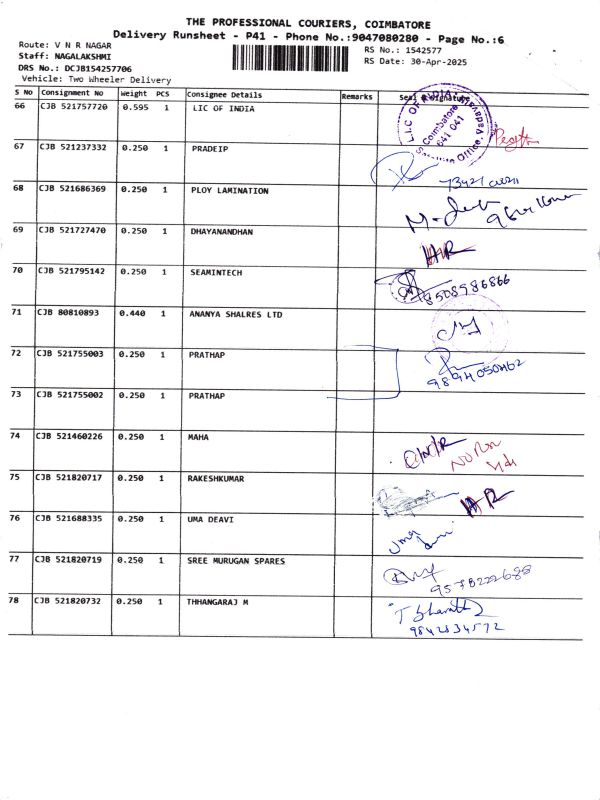 THE PROFESSIONAL COURIERS, COIMBATORE
Delivery Runsheet - P41 - Phone No.:9047080280 - Page No.:6
Route: V N R NAGAR
RS No.: 1542577
Staff: NAGALAKSHMI
RS Date: 30-Apr-2025
DRS No.: DCJB154257706
Vehicle: Two Wheeler Delivery
S No Consignment No Weight PCS Consignee Details Remarks
66 CJB 521757720 0.595 1 LIC OF INDIA
Coimbatore
641 041
67 CJB 521237332 0.250 1 PRADEIP
68 CJB 521686369 0.250 1 PLOY LAMINATION
69 CJB 521727470 0.250 1 DHAYANANDHAN
70 CJB 521795142 0.250 1 SEAMINTECH
8508986866
71 CJB 80810893 0.440 1 ANANYA SHALRES LTD
72 CJB 521755003 0.250 1 PRATHAP
9894050462
73 CJB 521755002 0.250 1 PRATHAP
74 CJB 521460226 0.250 1 MAHA
75 CJB 521820717 0.250 1 RAKESHKUMAR
76 CJB 521688335 0.250 1 UMA DEAVI
77 CJB 521820719 0.250 1 SREE MURUGAN SPARES
9578222688
78 CJB 521820732 0.250 1 THHANGARAJ M
9842834572